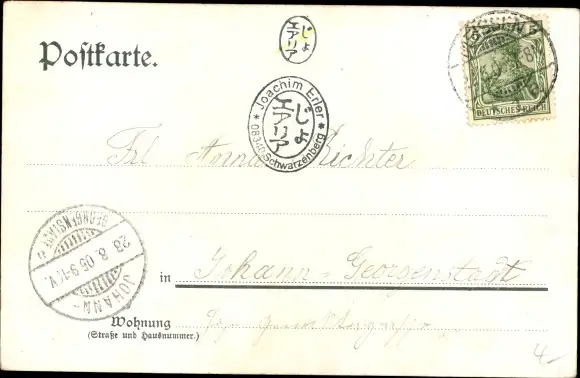 Postkarte.
じょ
エアリア
DEUTSCHES REICH
* Joachim Erler *
じょ
エアリア
08340 Schwarzenberg
Frl Anna Richter
JOHANN-
GEORGENSTADT
23.8.05.9-10V.
in Johann-Georgenstadt
Wohnung
(Straße und Hausnummer.)
4-